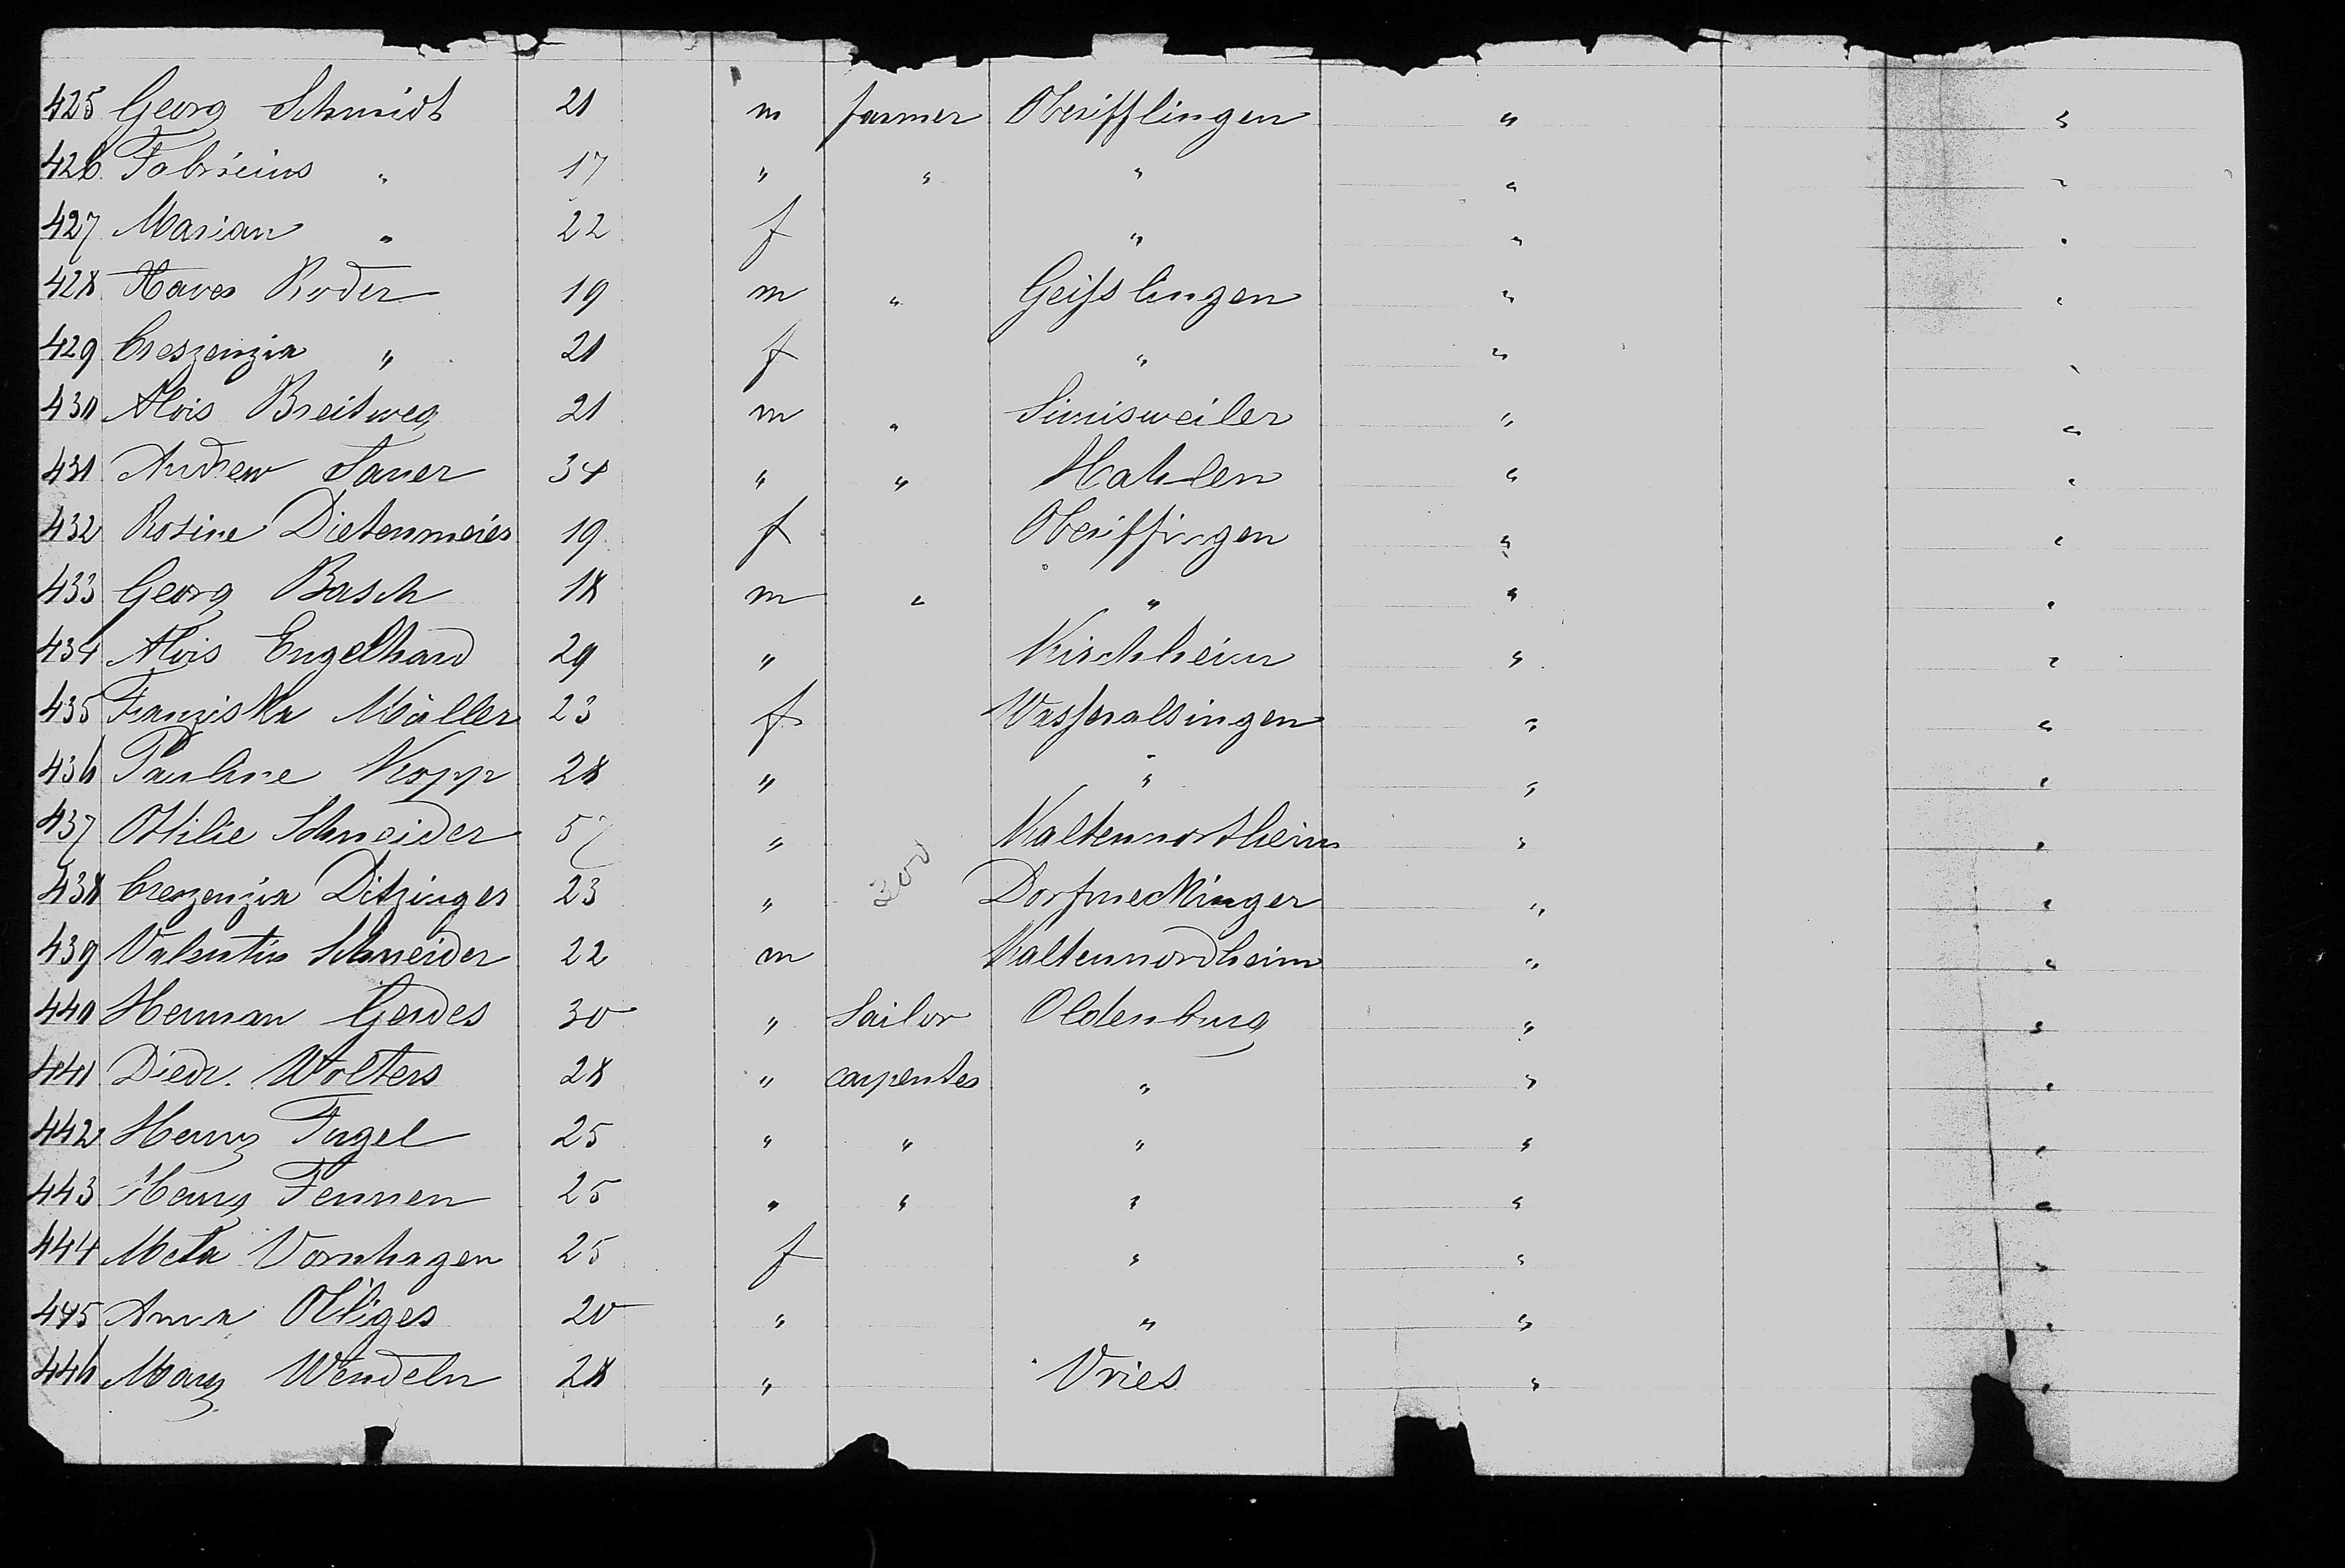 425 Georg Schmidt 21 m farmer Oberifflingen " "
426 Fabricius " 17 " " " " "
427 Marian " 22 f " " "
428 Xaver Roder 19 m " Geisslingen " "
429 Creszenzia " 21 f " " "
430 Alois Breitweg 21 m " Simisweiler " "
431 Andrew Saner 34 " " Hahlen " "
432 Rosine Dietenmeier 19 f Oberiffingen " "
433 Georg Basch 18 m " " " "
434 Alois Engelhard 29 " Kirchheim " "
435 Franziska Müller 23 f Wasseralfingen " "
436 Pauline Kopp 28 " " " "
437 Ottilie Schneider 57 " Kaltennortheim " "
438 Creszenzia Ditzinger 23 " 300 Dorfmerkinger " "
439 Valentin Schneider 22 m Kaltennordheim " "
440 Herman Gerdes 30 " Sailor Oldenburg " "
441 Diedr. Wolters 28 " carpenter " " "
442 Henry Fugel 25 " " " " "
443 Henry Fennen 25 " " " " "
444 Meta Vornhagen 25 f " " "
445 Anna Olliges 20 " " " "
446 Mary Wendeln 28 " Vries " "